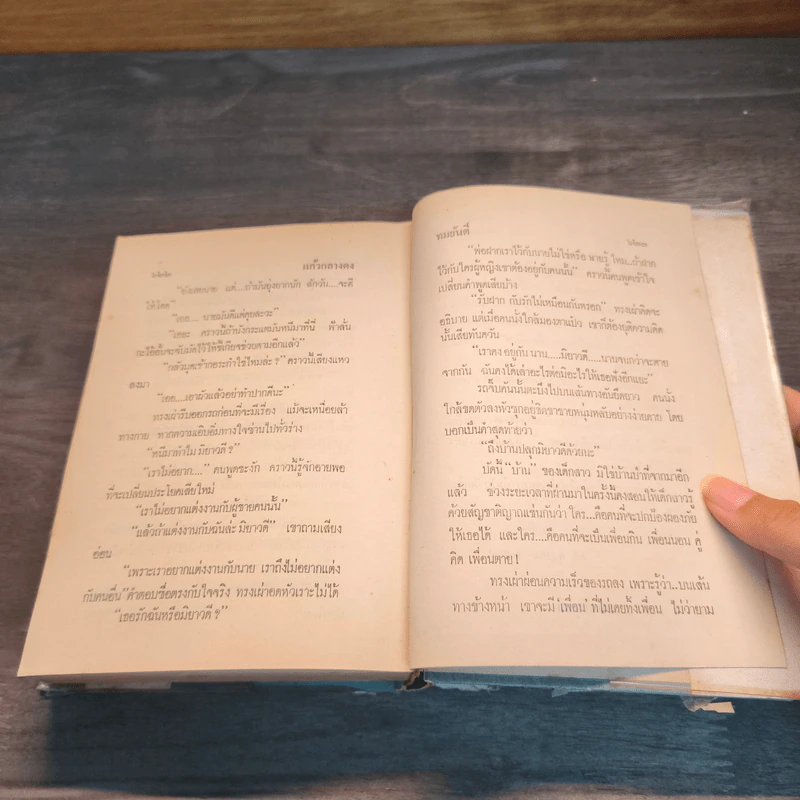 แก้วกลางดง
"ยังเลยนาย แต่....ถ้ามันยุ่งยากนัก สักวัน....จะตี
ให้โดด"
"เออ.... นายมันดีแต่คุยละวะ"
"เถอะ คราวนี้ถ้านังกระแตมันหนีมาที่นี่ ฟ้าลั่น
"แล้วมุดเข้ากอระกำใช่ไหมล่ะ ?" คราวนี้เสียงแหว
ออกมา
"เออ....เอาผัวแล้วอย่าทำปากดีนะ"
ทรงเผ่ารีบออกรถก่อนที่จะมีเรื่อง แม้จะเหนื่อยล้า
ทางกาย หากความเอิบอิ่มทางใจซ่านไปทั่วร่าง
"หนีมาทำไม มิยาวดี ?"
"เราไม่อยาก...." คนพูดชะงัก คราวนี้รู้จักอายพอ
ที่จะเปลี่ยนประโยคเสียใหม่
"เราไม่อยากแต่งงานกับผู้ชายคนนั้น"
"แล้วถ้าแต่งงานกับฉันล่ะ มิยาวดี" เขาถามเสียง
อ่อน
"เพราะเราอยากแต่งงานกับนาย เราถึงไม่อยากแต่ง
กับคนอื่น" คำตอบซื่อตรงกับใจจริง ทรงเผ่าอดหัวเราะไม่ได้
"เธอรักฉันหรือมิยาวดี ?"
ทมยันตี
"พ่อฝากเราไว้กับนายไม่ใช่หรือ นายรู้ ไหม...ถ้าฝาก
ไว้กับใครผู้หญิงเขาต้องอยู่กับคนนั้น" คราวนี้คนพูดเข้าใจ
เปลี่ยนคำพูดเสียบ้าง
"รับฝาก กับรักไม่เหมือนกันหรอก" ทรงเผ่าคิดจะ
อธิบาย แต่เมื่อคนนั่งใกล้มองตาแป๋ว เขาก็ต้องยุติความคิด
นั้นเสียทันควัน
"เราคง อยู่กัน นาน....มิยาวดี.....นานจนกว่าจะตาย
จากกัน ฉันคงได้เล่าอะไรต่อมิอะไรให้เธอฟังอีกแยะ"
รถจี๊บคันนั้นตะบึงไปบนเส้นทางอันยืดยาว คนนั่ง
ใกล้ขดตัวลงหัวซุกอยู่ชิดเขาชายหนุ่มหลับอย่างง่ายดาย โดย
บอกเป็นคำสุดท้ายว่า
"ถึงบ้านปลุกมิยาวดีด้วยนะ"
บัดนี้ "บ้าน" ของเด็กสาว มิใช่บ้านป่าที่จากมาอีก
แล้ว ช่วงระยะเวลาที่ผ่านมาในครั้งนี้คงสอนให้เด็กสาวรู้
ด้วยสัญชาติญาณเช่นกันว่า ใคร...คือคนที่จะปกป้องผองภัย
ให้เธอได้ และใคร....คือคนที่จะเป็นเพื่อนกิน เพื่อนนอน คู่
คิด เพื่อนตาย !
ทรงเผ่าผ่อนความเร็วของรถลง เพราะรู้ว่า..บนเส้น
ทางข้างหน้า เขาจะมี 'เพื่อน' ที่ไม่เคยทิ้งเพื่อน ไม่ว่ายาม